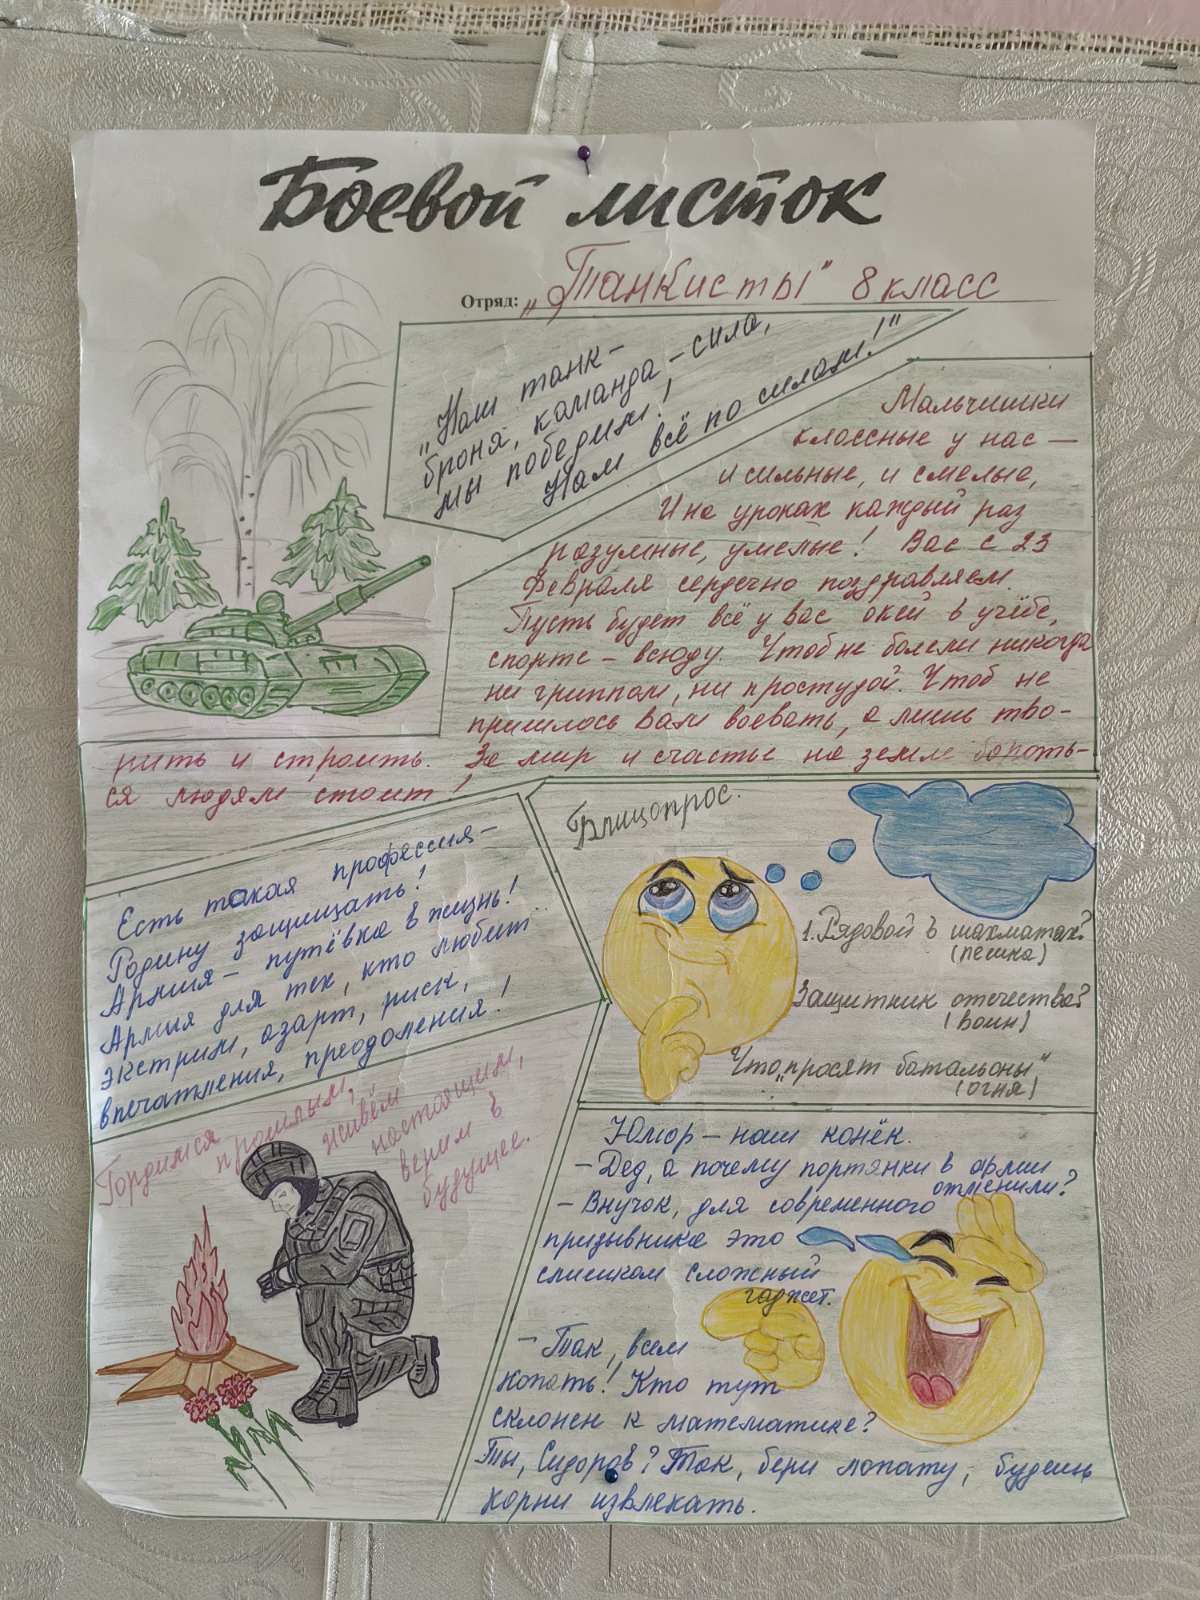 Боевой листок
Отряд: „Танкисты" 8 класс
„Наш танк –
броня, команда – сила,
мы победим!
Нам всё по силам!"
Мальчишки
классные у нас –
и сильные, и смелые,
И на уроках каждый раз
разумные, умелые! Вас с 23
февраля сердечно поздравляем.
Пусть будет всё у вас окей в учёбе,
спорте – всюду. Чтоб не болели никогда
ни гриппом, ни простудой. Чтоб не
пришлось вам воевать, а лишь тво-
рить и строить. За мир и счастье на земле бороть-
ся людям стоит!
Есть такая профессия –
Родину защищать!
Армия – путёвка в жизнь!
Армия для тех, кто любит
экстрим, азарт, риск,
впечатления, преодоления!
Гордимся
прошлым,
живём
настоящим,
верим в
будущее.
Блицопрос.
1. Рядовой в шахматах?
(пешка)
Защитник отечества?
(воин)
Что „просят батальоны"
(огня)
Юмор – наш конёк.
– Дед, а почему портянки в армии
отменили?
– Внучок, для современного
призывника это
слишком сложный
гаджет.
– Так, всем
копать! Кто тут
склонен к математике?
Ты, Сидоров? Так, бери лопату, будешь
корни извлекать.